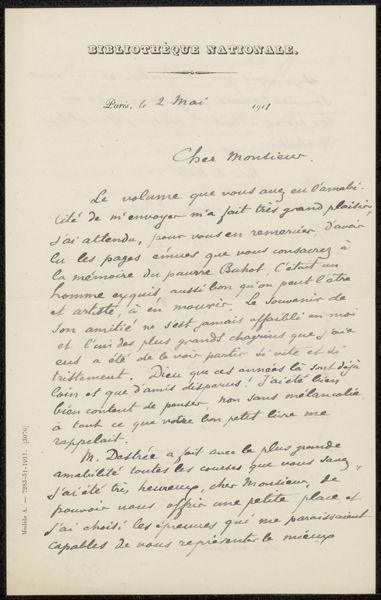 BIBLIOTHÈQUE NATIONALE.
Paris, le 2 Mai 1918
Cher Monsieur.
Le volume que vous avez eu l'amabi-
lité de m'envoyer m'a fait très grand plaisir,
j'ai attendu, pour vous en remercier, d'avoir
lu les pages émues que vous consacrez à
la mémoire du pauvre Buhot. C'était un
homme exquis, aussi bon qu'on peut l'être
et artiste, à en mourir. Le souvenir de
son amitié ne s'est jamais affaibli en moi
et l'un des plus grands chagrins que j'aie
eus a été de le voir partir si vite et si
tristement. Dieu que ces années là sont déjà
loin et que d'amis disparus ! J'ai été bien
bien content de penser, non sans mélancolie,
à tout ce que votre bon petit livre me
rappelait.
M. Destrée a fait avec la plus grande
amabilité toutes les courses que vous savez,
j'ai été très heureux, cher Monsieur, de
pouvoir vous offrir une petite place et
j'ai choisi les épreuves qui me paraissaient
capables de vous représenter le mieux
Modèle A. — 7283-31-1911. [3076]